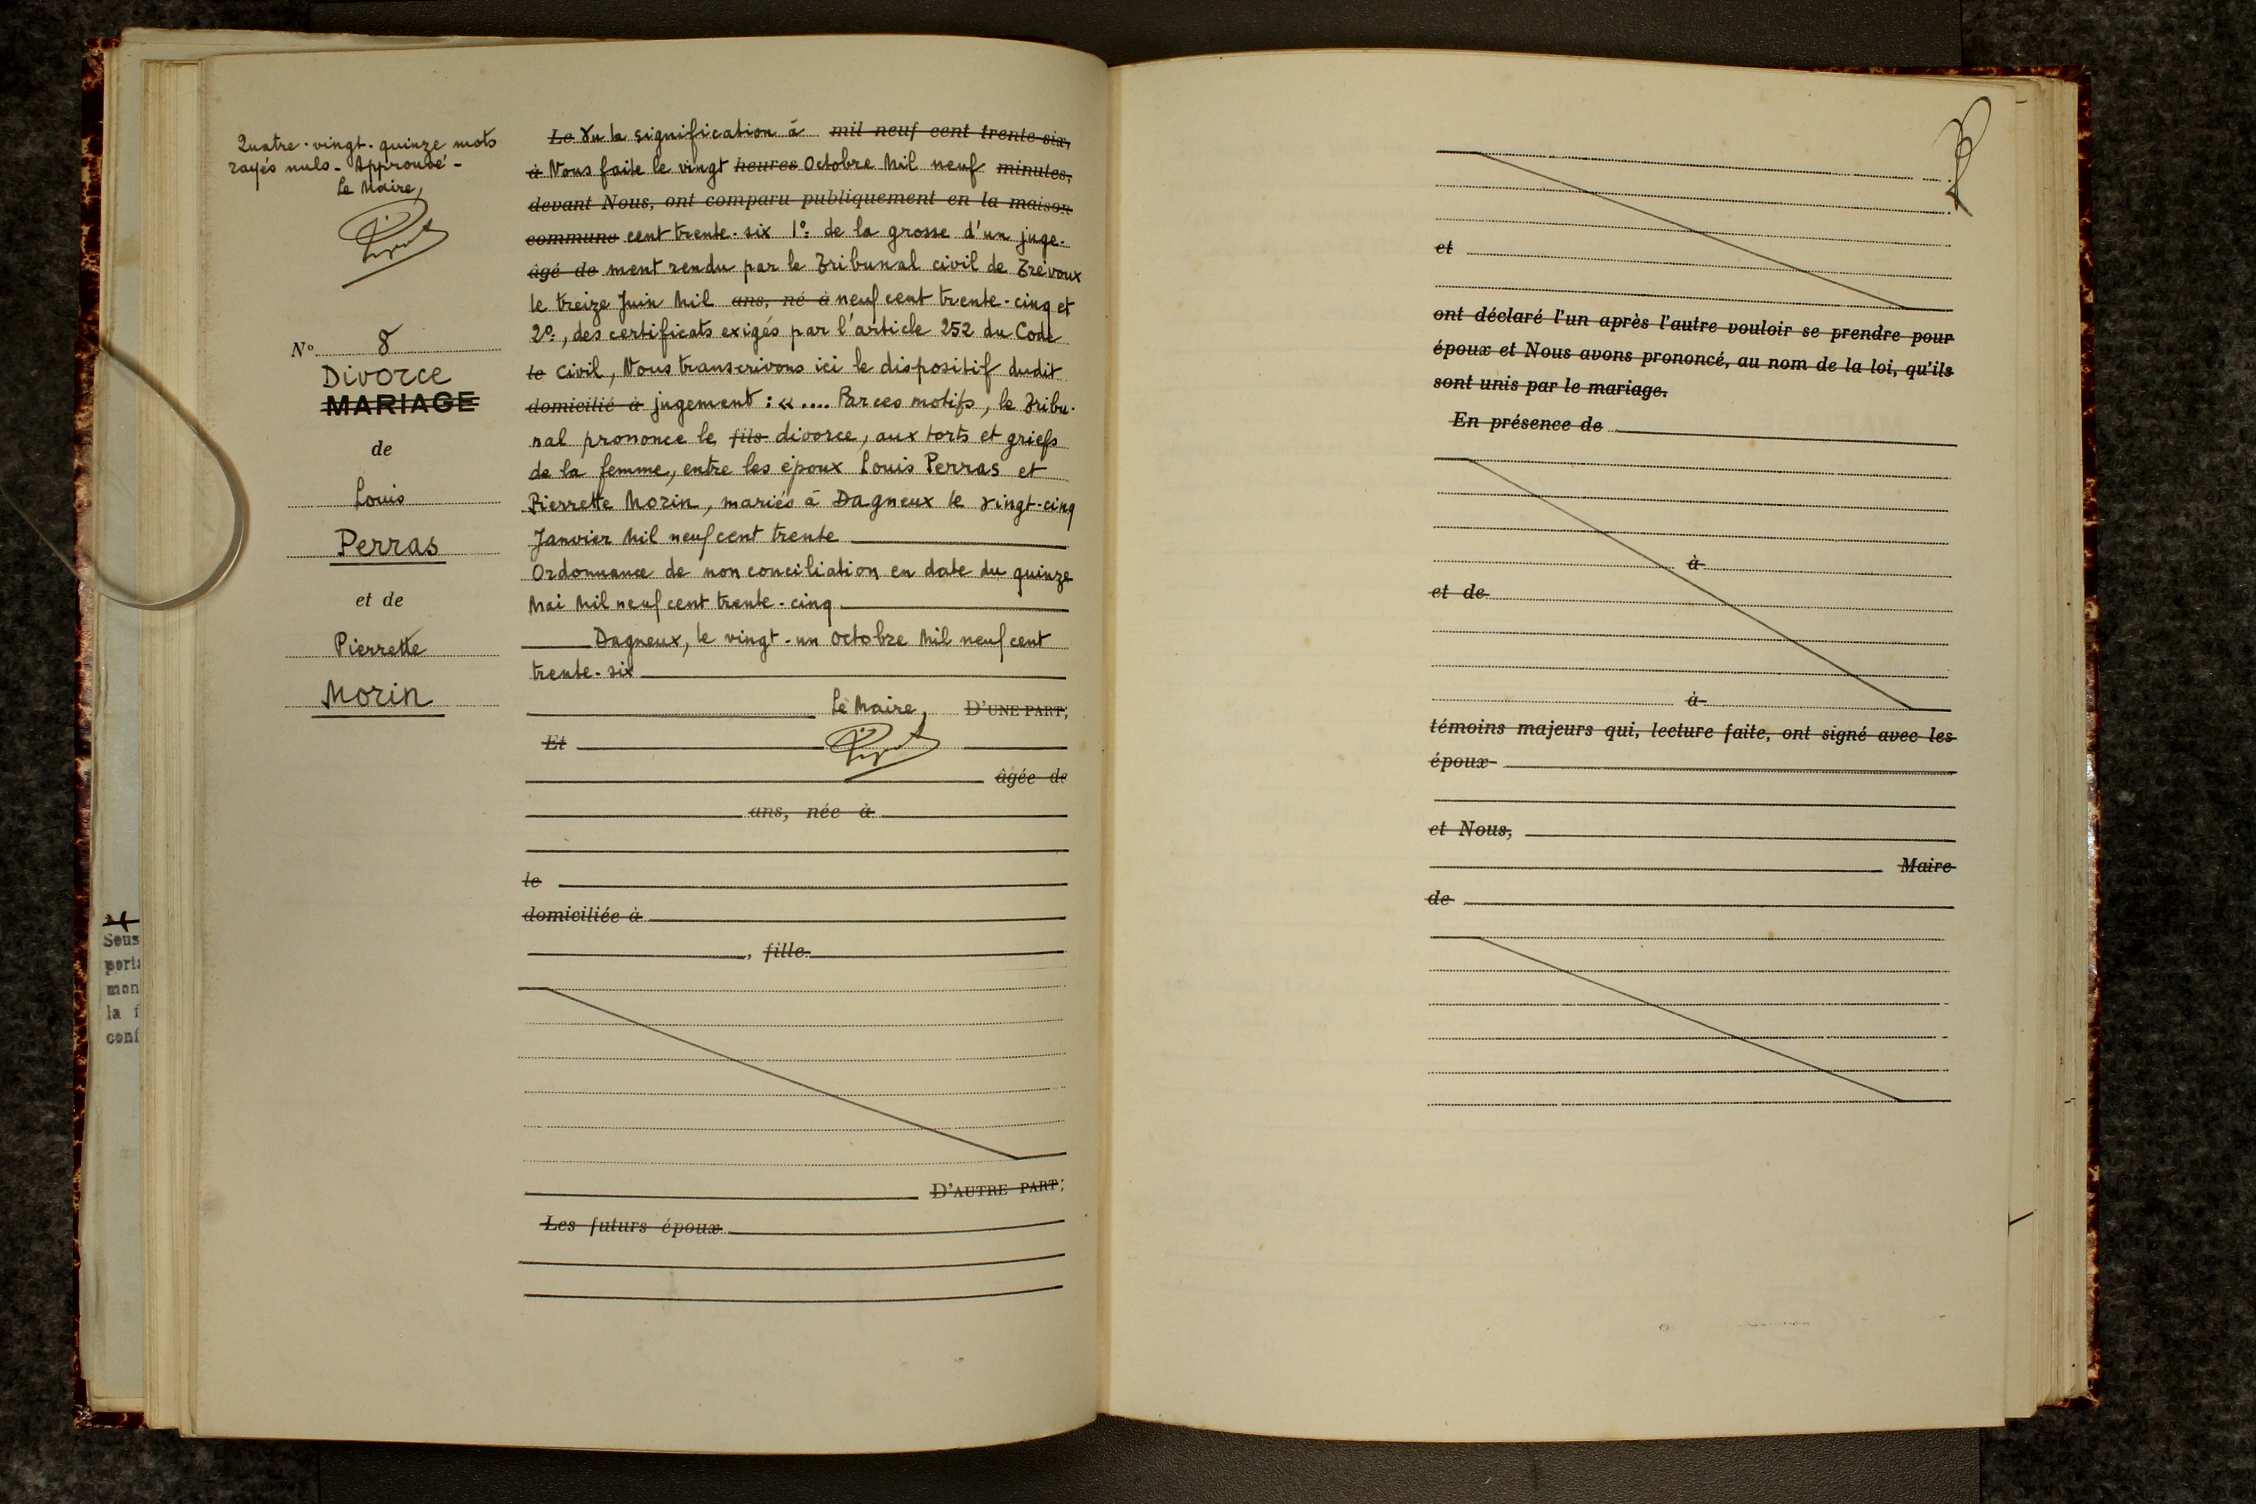 Quatre-vingt-quinze mots
rayés nuls - Approuvé -
Le Maire,
N° 8
Divorce
MARIAGE
de
Louis
Perras
et de
Pierrette
Morin
Le Vu la signification à mil neuf cent trente-six,
à Nous faite le vingt heures Octobre Mil neuf minutes,
devant Nous, ont comparu publiquement en la maison
commune cent trente-six 1°: de la grosse d'un juge-
âgé de ment rendu par le Tribunal civil de Trévoux
le treize Juin Mil ans, né à neuf cent trente-cinq et
2°:, des certificats exigés par l'article 252 du Code
le Civil, Nous transcrivons ici le dispositif dudit
domicilié à jugement : «.... Par ces motifs, le Tribu-
nal prononce le fils divorce, aux torts et griefs
de la femme, entre les époux Louis Perras et
Pierrette Morin, mariés à Dagneux le vingt-cinq
Janvier Mil neuf cent trente
Ordonnance de non conciliation en date du quinze
Mai Mil neuf cent trente-cinq
Dagneux, le vingt-un Octobre Mil neuf cent
trente-six
Le Maire, D'UNE PART;
Et
âgée de
ans, née à
le
domiciliée à
, fille
D'AUTRE PART;
Les futurs époux
et
ont déclaré l'un après l'autre vouloir se prendre pour
époux et Nous avons prononcé, au nom de la loi, qu'ils
sont unis par le mariage.
En présence de
à
et de
à
témoins majeurs qui, lecture faite, ont signé avec les
époux
et Nous,
Maire
de
Sous
mon
la f
conf